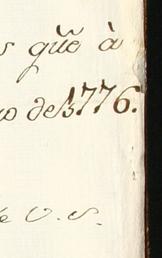 s que à
o de 1776.
e V. S.